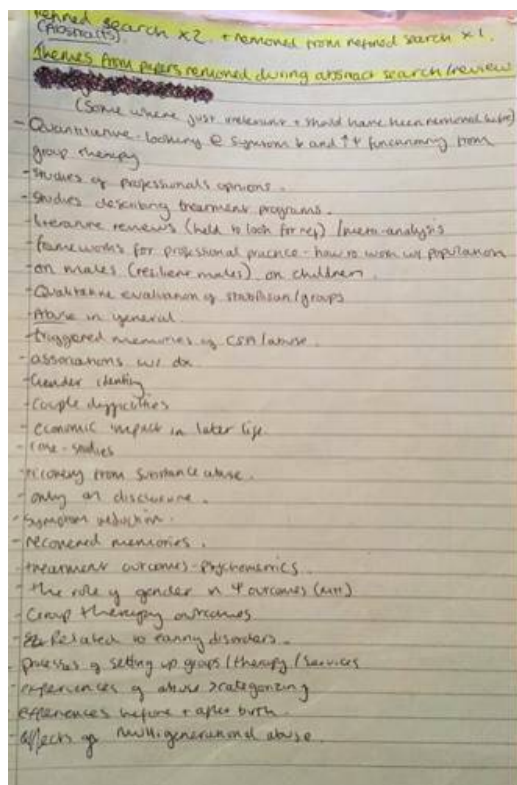 refined search x2. + removed from refined search x1.
(Abstracts).
Themes from papers removed during abstract search/review
(Some where just irrelevant + should have been removed before)
- Quantitative - looking @ symptom ↓ and ↑ functioning from
group therapy
- studies of professionals opinions.
- Studies describing treatment programs.
- literature reviews (held to look for ref) / meta-analysis
- frameworks for professional practice - how to work w/ population
- on males (resilient males) on children.
- Qualitative evaluation of /groups
- Abuse in general
- triggered memories of CSA/abuse.
- associations w/ dx.
- Gender identity
- couple difficulties
- economic impact in later life.
- case-studies
- recovery from substance abuse.
- only on disclosure.
- Symptom reduction.
- recovered memories.
- treatment outcomes - psychometrics.
- the role of gender in Ψ outcomes
- Group therapy outcomes
- Related to eating disorders.
- processes of setting up groups/therapy/services
- experiences of abuse > categorizing
- experiences before + after birth.
- affects of multigenerational abuse.